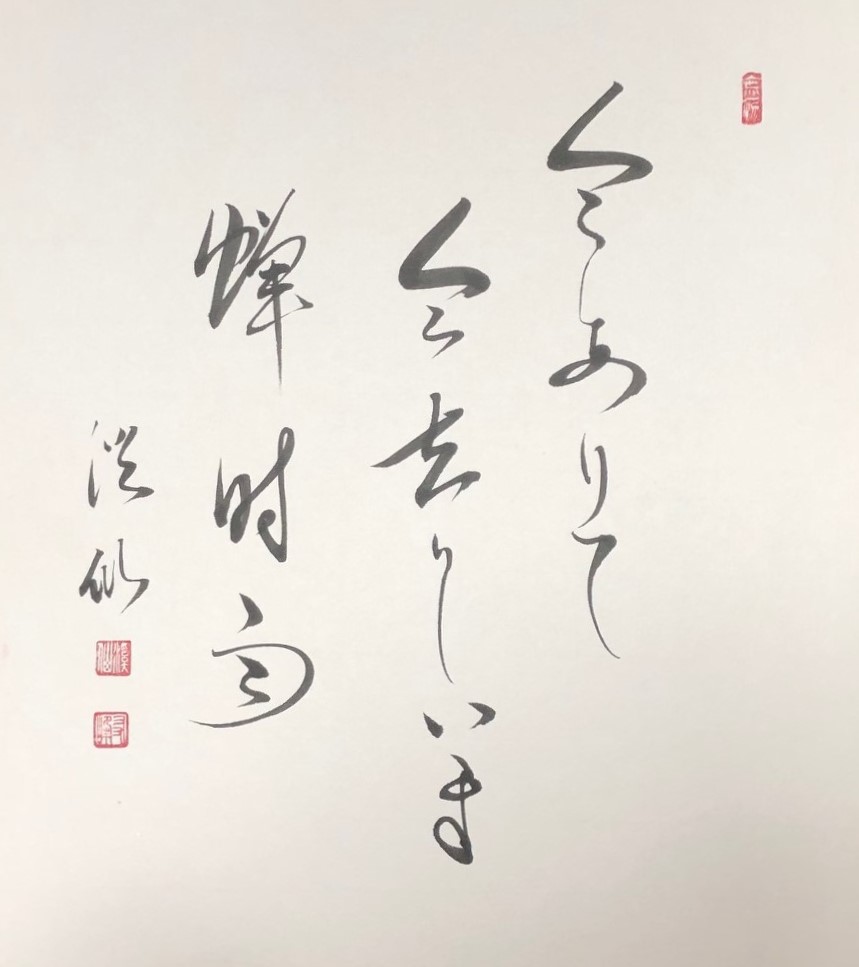 今ありて
今去りしいま
蝉时雨
渓仙